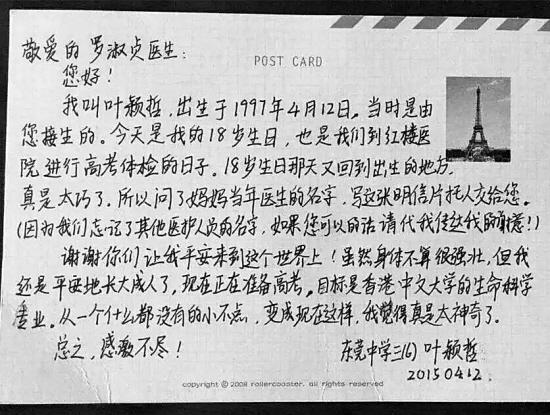 敬爱的罗淑贞医生:
POST CARD
您好!
我叫叶颖哲,出生于1997年4月12日。当时是由
您接生的。今天是我的18岁生日,也是我们到红楼医
院进行高考体检的日子。18岁生日那天又回到出生的地方,
真是太巧了。所以问了妈妈当年医生的名字,写这张明信片托人交给您。
(因为我们忘记了其他医护人员的名字,如果您可以的话请代我传达我的谢意!)
谢谢你们让我平安来到这个世界上!虽然身体不算很强壮,但我
还是平安地长大成人了,现在正在准备高考。目标是香港中文大学的生命科学
专业。从一个什么都没有的小不点,变成现在这样,我觉得真是太神奇了。
总之,感激不尽!
东莞中学三(6) 叶颖哲
2015.04.12.
copyright © 2008 rollercoaster. all rights reserved